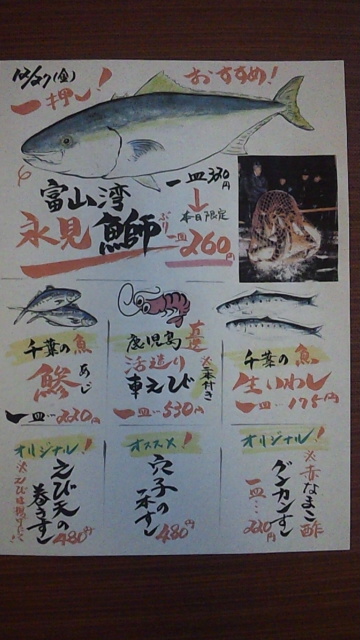 12/27(金)
一押し!
おすすめ!
富山湾
氷見 鰤
ぶり
一皿 330円
↓
本日限定
一皿 260円
千葉の魚
鯵 あじ
一皿‥220円
鹿児島 直送
活造り
車えび
※二本付き
一皿‥530円
千葉の魚
生いわし
一皿‥175円
オリジナル!
えび天の
巻きずし
480円
オススメ!
穴子の
一本ずし
480円
オリジナル!
※赤なまこ酢
グンカンずし
一皿‥220円